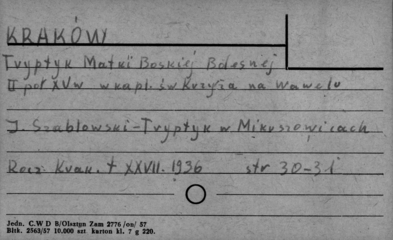 KRAKÓW
Tryptyk Matki Boskiej Bolesnej
II poł XV w w kapl. św Krzyża na Wawelu
J. Szablowski - Tryptyk w Mikuszowicach
Rocz. Krak. t XXVII. 1936 str 30-31
Jedn. C.W D 8/Olsztyn Zam 2776 /on/ 57
Bltk. 2563/57 10.000 szt. karton kl. 7 g 220.